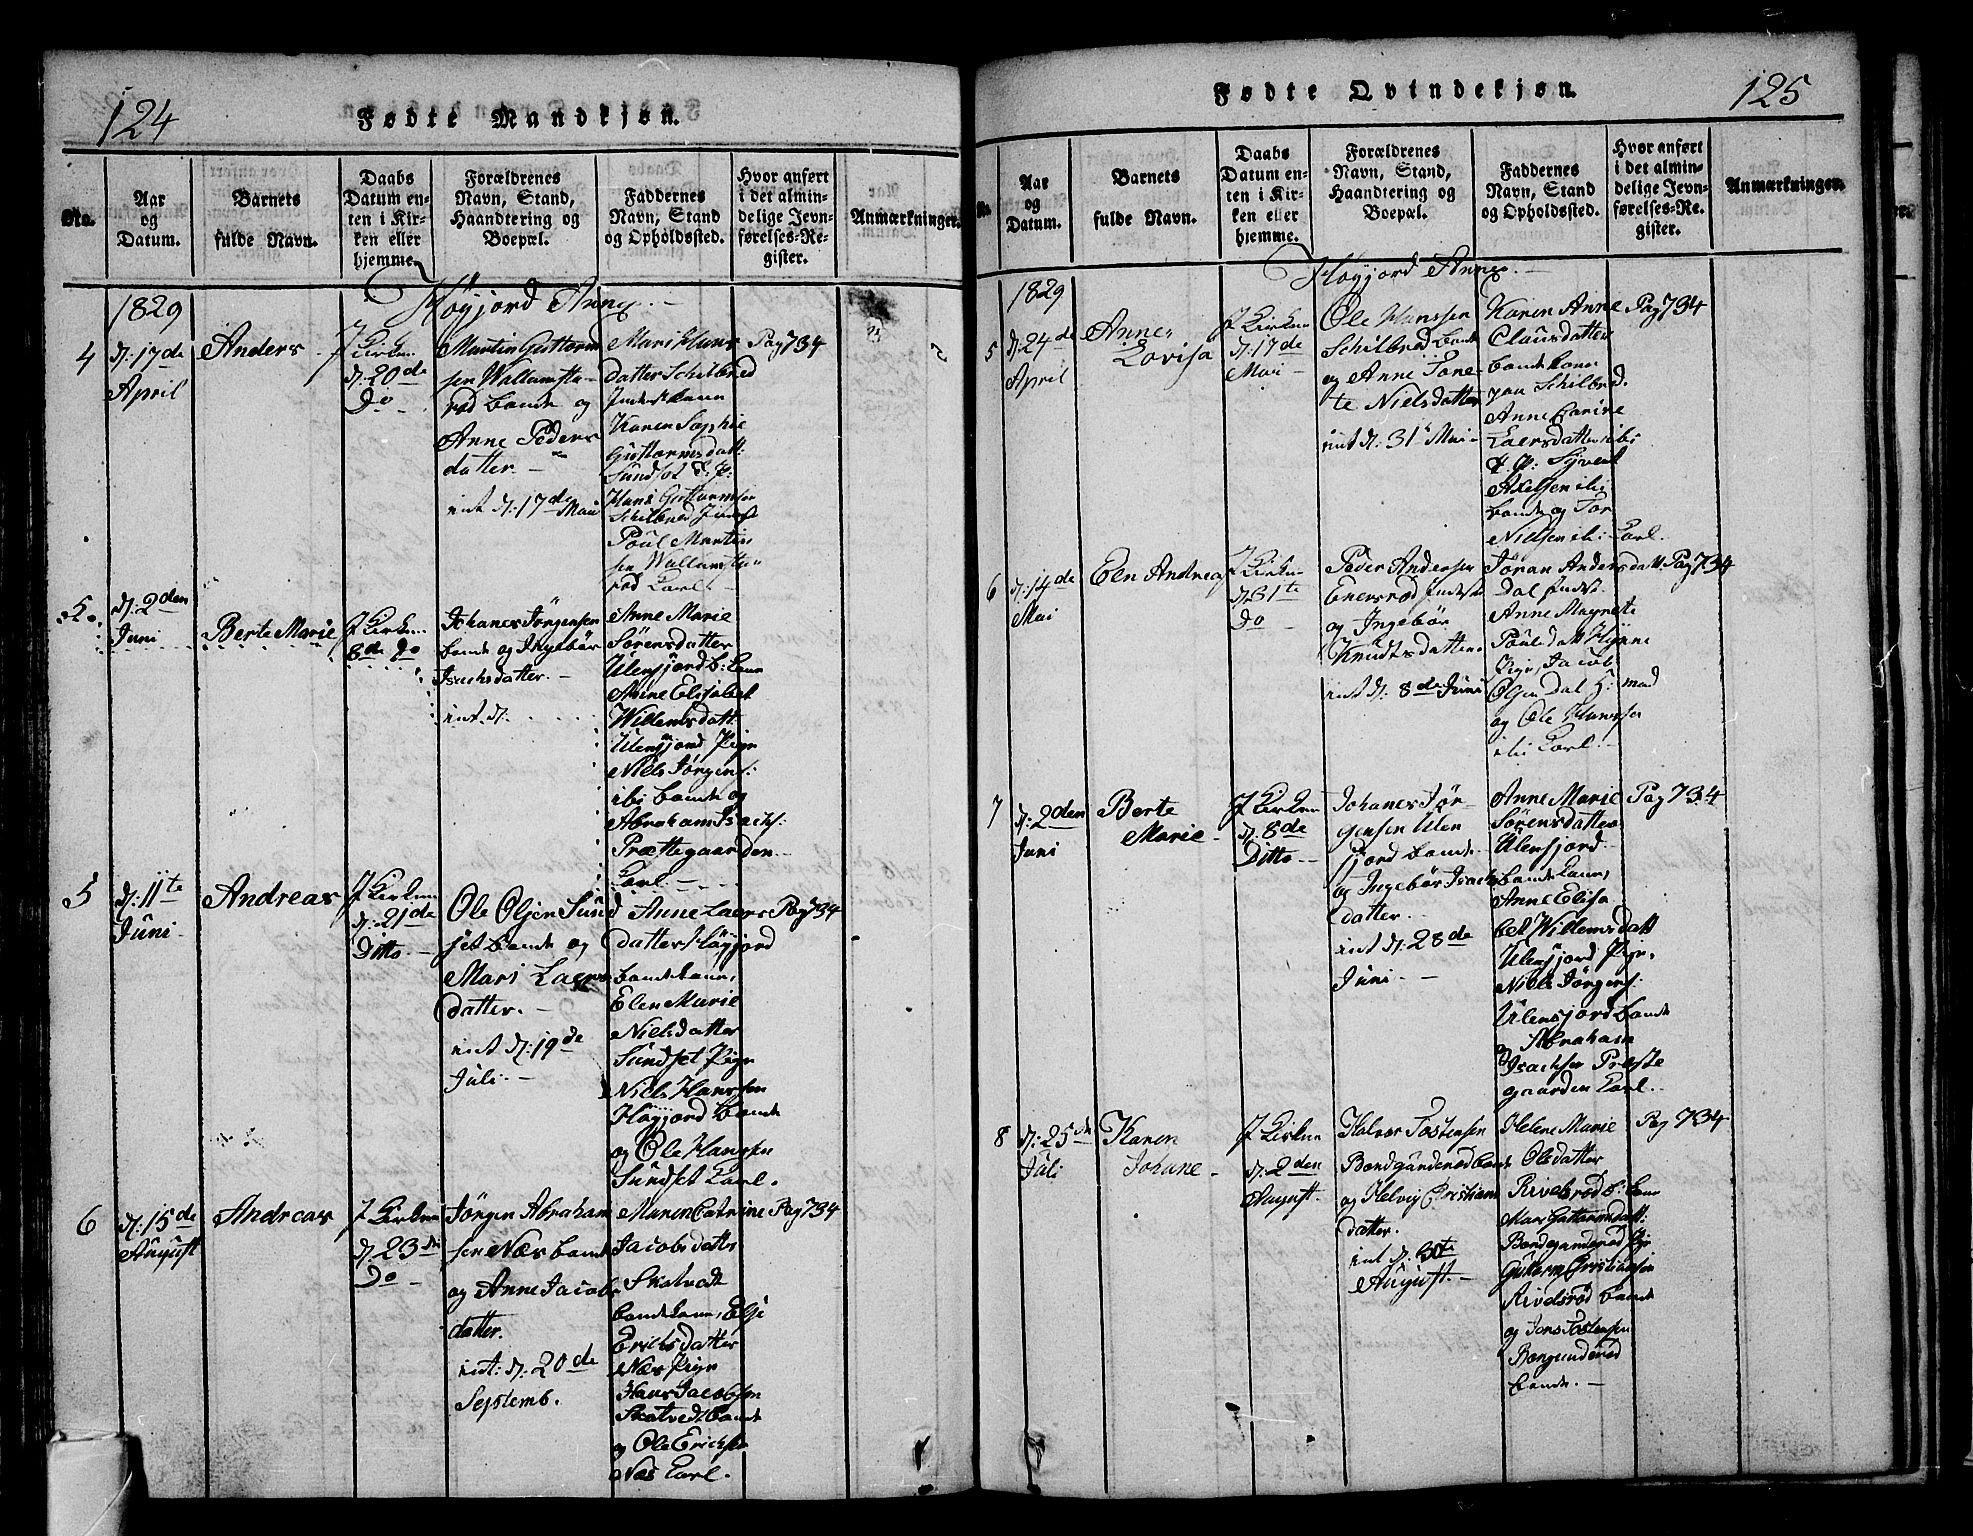 124
Fødte Mandkjøn.
No.
Aar
og
Datum.
Barnets
fulde Navn.
Daabs
Datum en-
ten i Kir-
ken eller
hjemme.
Forældrenes
Navn, Stand,
Haandtering og
Boepæl.
Faddernes
Navn, Stand
og Opholdssted.
Hvor anført
i det almin-
delige Jevn-
førelses-Re-
gister.
Anmærkninger.
Høyjord Annex.
1829
4
d: 17de
April
Anders
J Kirken
d: 20de
Do
Martin Guttorm
sen Wallumstu
rød bonde og
Anne Peders
datter. —
int d: 17de Mai
Mari Hans
datter Schilbred
Karen Sophie
Guttormsdatt:
Sundset
Hans Guttormsen
Schilbred
Poul Martin
sen Wallumstu
rød Carl.
Pag 734
5.
d: 2den
Juni
Berte Marie
J Kirken
8de Do
Johanes Jörgensen
bonde og Ingebör
Isachsdatter. —
int. d:
Anne Marie
Sörensdatter
Ulensjord b: kone
Anne Elisabet
Willemsdatt
Ulensjord Pige
Niels Jörgens:
ibi bonde og
Abraham Isachs:
Præstegaarden
Carl. —
5
d: 11te
Juni
Andreas
J Kirken
d: 21de
Ditto. —
Ole Olsen Sund
set bonde og
Mari Laers
datter. —
int d: 19de
Juli. —
Anne Laers
datter Høyjord
bondekone,
Elen Marie
Nielsdatter
Sundset Pige
Niels Hanssen
Høyjord bonde
og Ole Hanssen
Sundset Carl.
Pag 734
6
d: 15de
August
Andreas
J Kirken
d. 23de
Do —
Jörgen Abraham
sen Næs bonde
og Anne Jacobs
datter.
int: d: 20de
Septemb.
Maren Catrine
Jacobsdatter
Skatvedt
bondekone, Elsi
Erichsdatter
Næs Pige
Hans Jacobsen
Skatvedt bonde
og Ole Erichsen
Næs Carl.
Pag 734
125
Fødte Qvindekjøn.
No.
Aar
og
Datum.
Barnets
fulde Navn.
Daabs
Datum en-
ten i Kir-
ken eller
hjemme.
Forældrenes
Navn, Stand,
Haandtering og
Boepæl.
Faddernes
Navn, Stand
og Opholdssted.
Hvor anført
i det almin-
delige Jevn-
førelses-Re-
gister.
Anmærkninger.
Høyjord Annex. —
1829
5
d: 24de
April
Anne
Lovisa
J Kirken
d: 17de
Mai —
Ole Hanssen
Schilbred bonde
og Anne Tone
te Nielsdatter
int d: 31te Mai
Karen Anne
Clausdatter
bondekone
Schilbred.
Anne Carine
Laersdatter ibi
Syvert
Axelsen ibi
bonde og Tor
Nielsen ibi Carl.
Pag 734
6
d: 14de
Mai
Eln Andrea
J Kirken
d: 31te
Do
Peder Andersen
Enersrød
og Ingebör
Knudtsdatter
int d: 8de Juni
Jöran Andersdatt:
Dal
Anne Magrete
Poulsdatt Hynne
Pige, Jacob
Olsen Dal
og Ole Hanssen
ibi Carl. —
Pag 734
7
d: 2den
Juni
Berte
Marie —
J Kirken
d: 8de
Ditto —
Johanes Jör
gensen Ulen
sjord bonde
og Ingebör Isachs
datter. —
int d: 28de
Juni. —
Anne Marie
Sörensdatter
Ulensjord
bondekone,
Anne Elisa
bet Willemsdatt
Ulensjord Pige,
Niels Jörgens:
Ulensjord bonde
og Abraham
Isachsen Præste
gaarden Carl.
Pag 734
8
d: 25de
Juli
Karen
Johane —
J Kirken
d: 2den
August.
Halvor Tostensen
bonde
og Helvig Cristians
datter.
int d: 30te
August. —
Helene Marie
Olsdatter
Rivelsrød b: kone
Mari Guttormsdatt:
Guttorm Cristiansen
Rivelsrød bonde
og Jons Tostensen
bonde. —
Pag 734